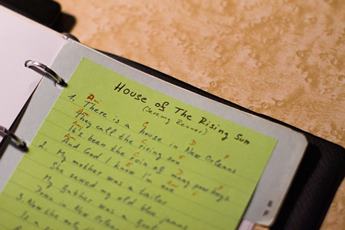 House of The Rising Sun
(Jeremy Renner)
1. There is a house in New Orleans
They call the rising sun
It's been the ruin of many poor boys
And God I know I'm one
2. My mother was a tailor
She sewed my old blue jeans
My father was a
Down in New Orleans
3. Now the only